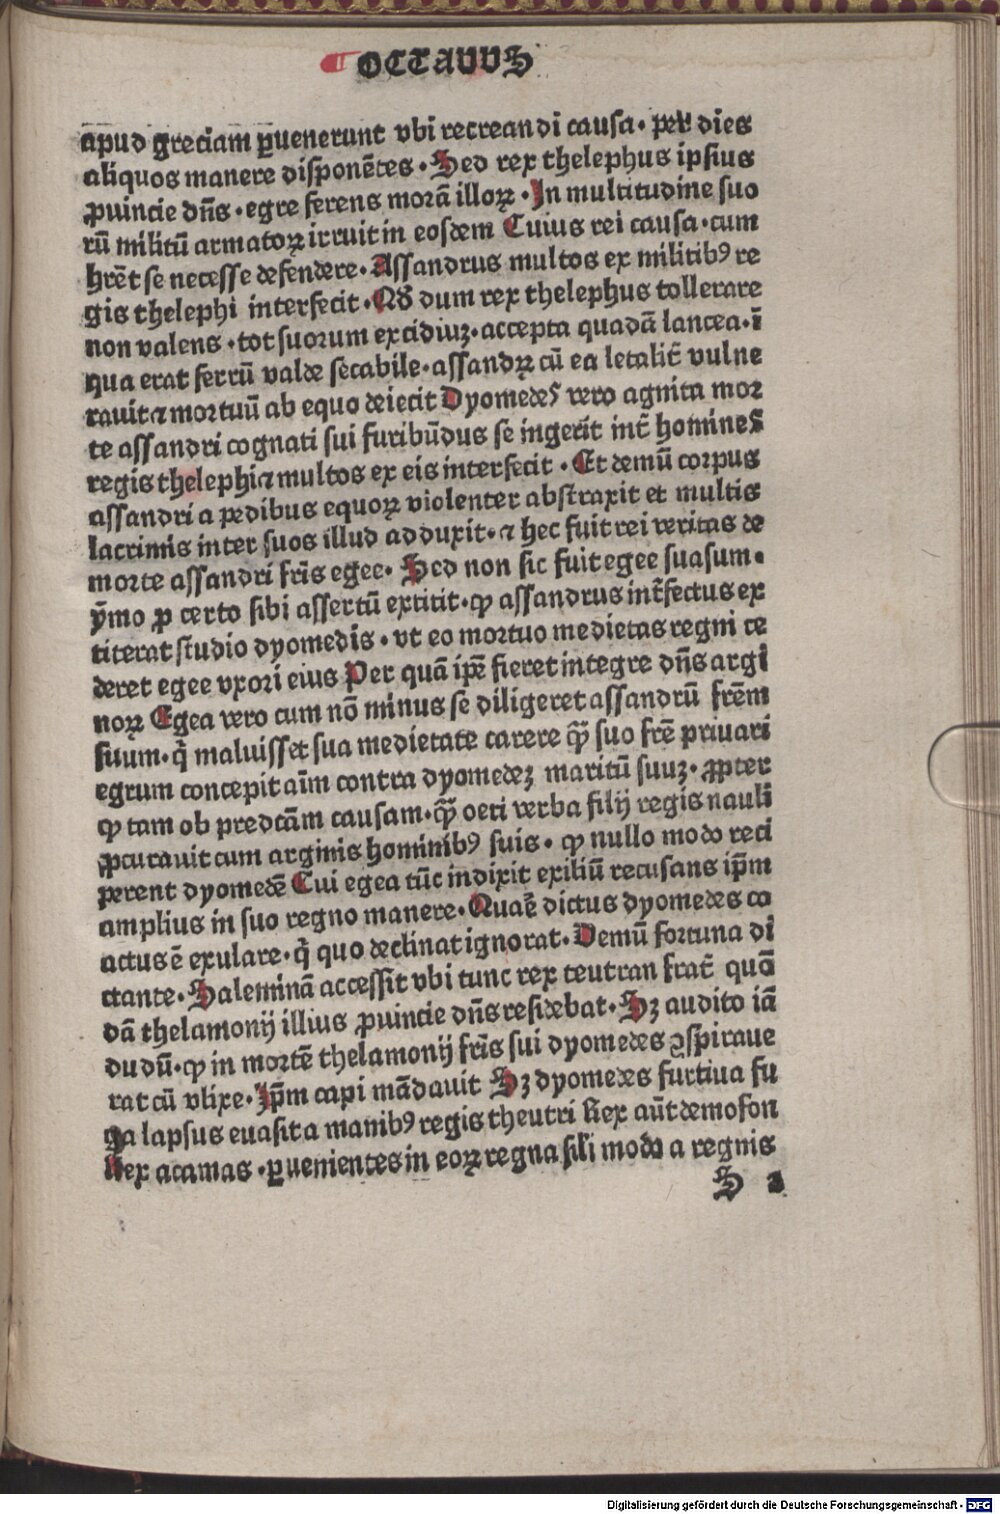 ¶ OCTAVVS
apud greciam ꝑuenerunt vbi recreandi causa · per dies
aliquos manere disponētes · Sed rex thelephus ipsius
ꝓuincie dn̄s · egre ferens morā illoꝝ · In multitudine suo
rū militū armatoꝝ irruit in eosdem Cuius rei causa · cum
hrēt se necesse defendere · Assandrus multos ex militibꝰ re
gis thelephi interfecit · Qd dum rex thelephus tollerare
non valens · tot suorum excidiuꝫ · accepta quadā lancea · ī
qua erat ferrū valde secabile · assandꝝ cū ea letalit̄ vulne
rauit ⁊ mortuū ab equo deiecit Dyomedes vero agnita mor
te assandri cognati sui furibūdus se ingerit int̄ homines
regis thelephi ⁊ multos ex eis interfecit · Et demū corpus
assandri a pedibus equoꝝ violenter abstraxit et multis
lacrimis inter suos illud adduxit · ⁊ hec fuit rei veritas de
morte assandri fr̄is egee · Sed non sic fuit egee suasum ·
ȳmo ꝓ certo sibi assertū extitit · ꝙ assandrus int̄fectus ex
titerat studio dyomedis · vt eo mortuo medietas regni ce
deret egee vxori eius Per quā ip̄e fieret integre dn̄s argi
noꝝ Egea vero cum nō minus se diligeret assandrū frēm
suum · q̄ maluisset sua medietate carere ꝙ̄ suo frē priuari
egrum concepit aīm contra dyomedeꝫ maritū suuꝫ · ꝓpter
ꝙ tam ob predcām causam · ꝙ̄ oeti verba filij regis nauli
ꝓcurauit cum arginis hominibꝰ suis · ꝙ nullo modo reci
perent dyomedē Cui egea tūc indixit exiliū recusans ip̄m
amplius in suo regno manere · Quaē dictus dyomedes co
actus ē exulare · q̄ quo declinat ignorat · Demū fortuna di
ctante · Saleminā accessit vbi tunc rex teutran frat̄ quō
dā thelamonij illius ꝓuincie dn̄s residebat · Sꝫ audito iā
dudū · ꝙ in mortē thelamonij fr̄is sui dyomedes ꝯspiraue
rat cū vlixe · Ip̄m capi mādauit Sꝫ dyomedes furtiua fu
ga lapsus euasit a manibꝰ regis theutri Rex aūt demofon
Rex acamas · ꝑuenientes in eoꝝ regna sili modo a regnis
S 2
Digitalisierung gefördert durch die Deutsche Forschungsgemeinschaft - DFG